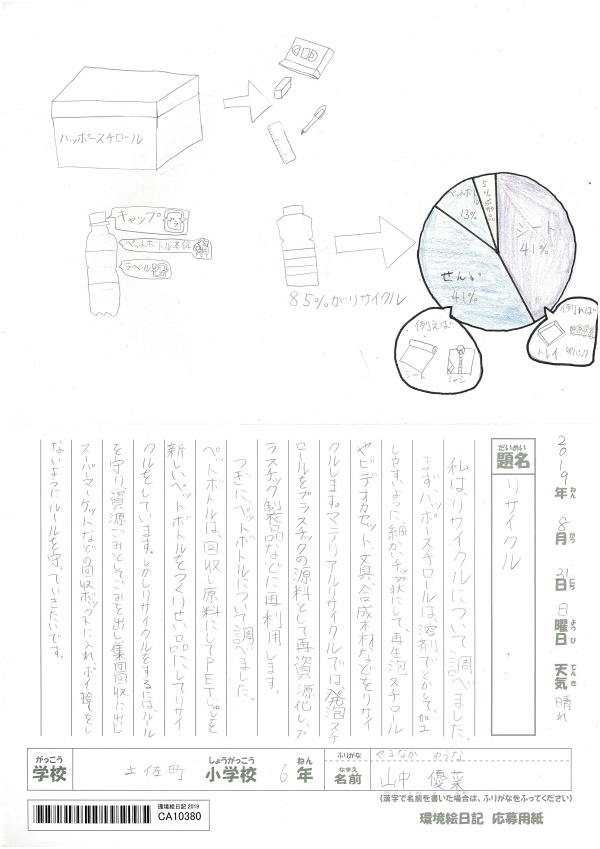 ハッポースチロール
キャップ
プラ
ペットボトル本体
PET
ラベル
プラ
85%がリサイクル
ペットボトル
13%
5%
シート
41%
せんい
41%
例えば
シート
シャツ
例えば
トレイ
卵パック
2019年ねん8月がつ21日にち日曜日ようび天気てんき晴れ
題名だいめい
リサイクル
私は、リサイクルについて調べました。
まず、ハッポースチロールは、溶剤でとかして、加工
しやすいように細かくチップ状にして、再生発泡スチロール
やビデオカセット、文具、合成木材などをリサイ
クルします。マテリアルリサイクルでは、発泡スチ
ロールをプラスチックの源料として再資源化し、プ
ラスチック製品などに再利用します。
つぎにペットボトルについて調べました。
ペットボトルは、回収し原料にしてPETじゅしを
新しいペットボトルをつくりせい品にしてリサイ
クルをしています。しかしリサイクルをするには、ルール
を守り資源ごみとしてごみを出し、集団回収に出し
スーパーマーケットなどの回収ボックスに入れ、ポイ捨てをし
ないようにルールを守っていきたいです。
学校がっこう 土佐町 小学校しょうがっこう 6年ねん
ふりがな やまなか ゆうな
名前なまえ 山中 優菜
(漢字で名前を書いた場合は、ふりがなをふってください)
環境絵日記 2019
CA10380
環境絵日記 応募用紙